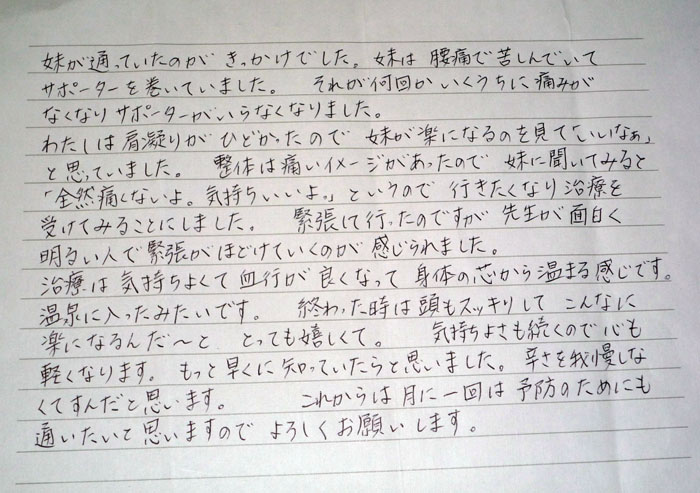 妹が通っていたのがきっかけでした。妹は腰痛で苦しんでいて
サポーターを巻いていました。 それが何回かいくうちに痛みが
なくなりサポーターがいらなくなりました。
わたしは肩凝りがひどかったので妹が楽になるのを見て「いいなぁ」
と思っていました。 整体は痛いイメージがあったので妹に聞いてみると
「全然痛くないよ。気持ちいいよ。」というので行きたくなり治療を
受けてみることにしました。 緊張して行ったのですが先生が面白く
明るい人で緊張がほどけていくのが感じられました。
治療は気持ちよくて血行が良くなって身体の芯から温まる感じです。
温泉に入ったみたいです。 終わった時は頭もスッキリしてこんなに
楽になるんだ～と とっても嬉しくて。 気持ちよさも続くので心も
軽くなります。もっと早くに知っていたらと思いました。辛さを我慢しな
くてすんだと思います。 これからは月に一回は予防のためにも
通いたいと思いますのでよろしくお願いします。